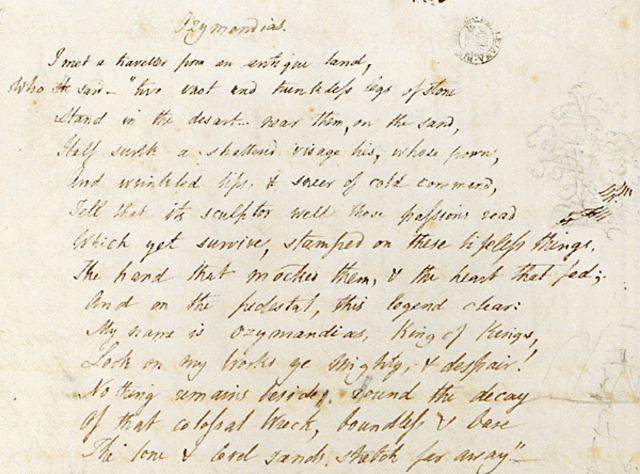 Ozymandias.
I met a traveller from an antique land,
Who said — "two vast and trunkless legs of stone
Stand in the desart.. near them, on the sand,
Half sunk a shattered visage lies, whose frown,
And wrinkled lips, & sneer of cold command,
Tell that its sculptor well those passions read
Which yet survive, stamped on these lifeless things,
The hand that mocked them, & the heart that fed;
And on the pedestal, this legend clear:
My name is Ozymandias, King of Kings,
Look on my Works ye Mighty, & despair!
No thing remains beside. round the decay
Of that colossal Wreck, boundless & bare
The lone & level sands stretch far away"—